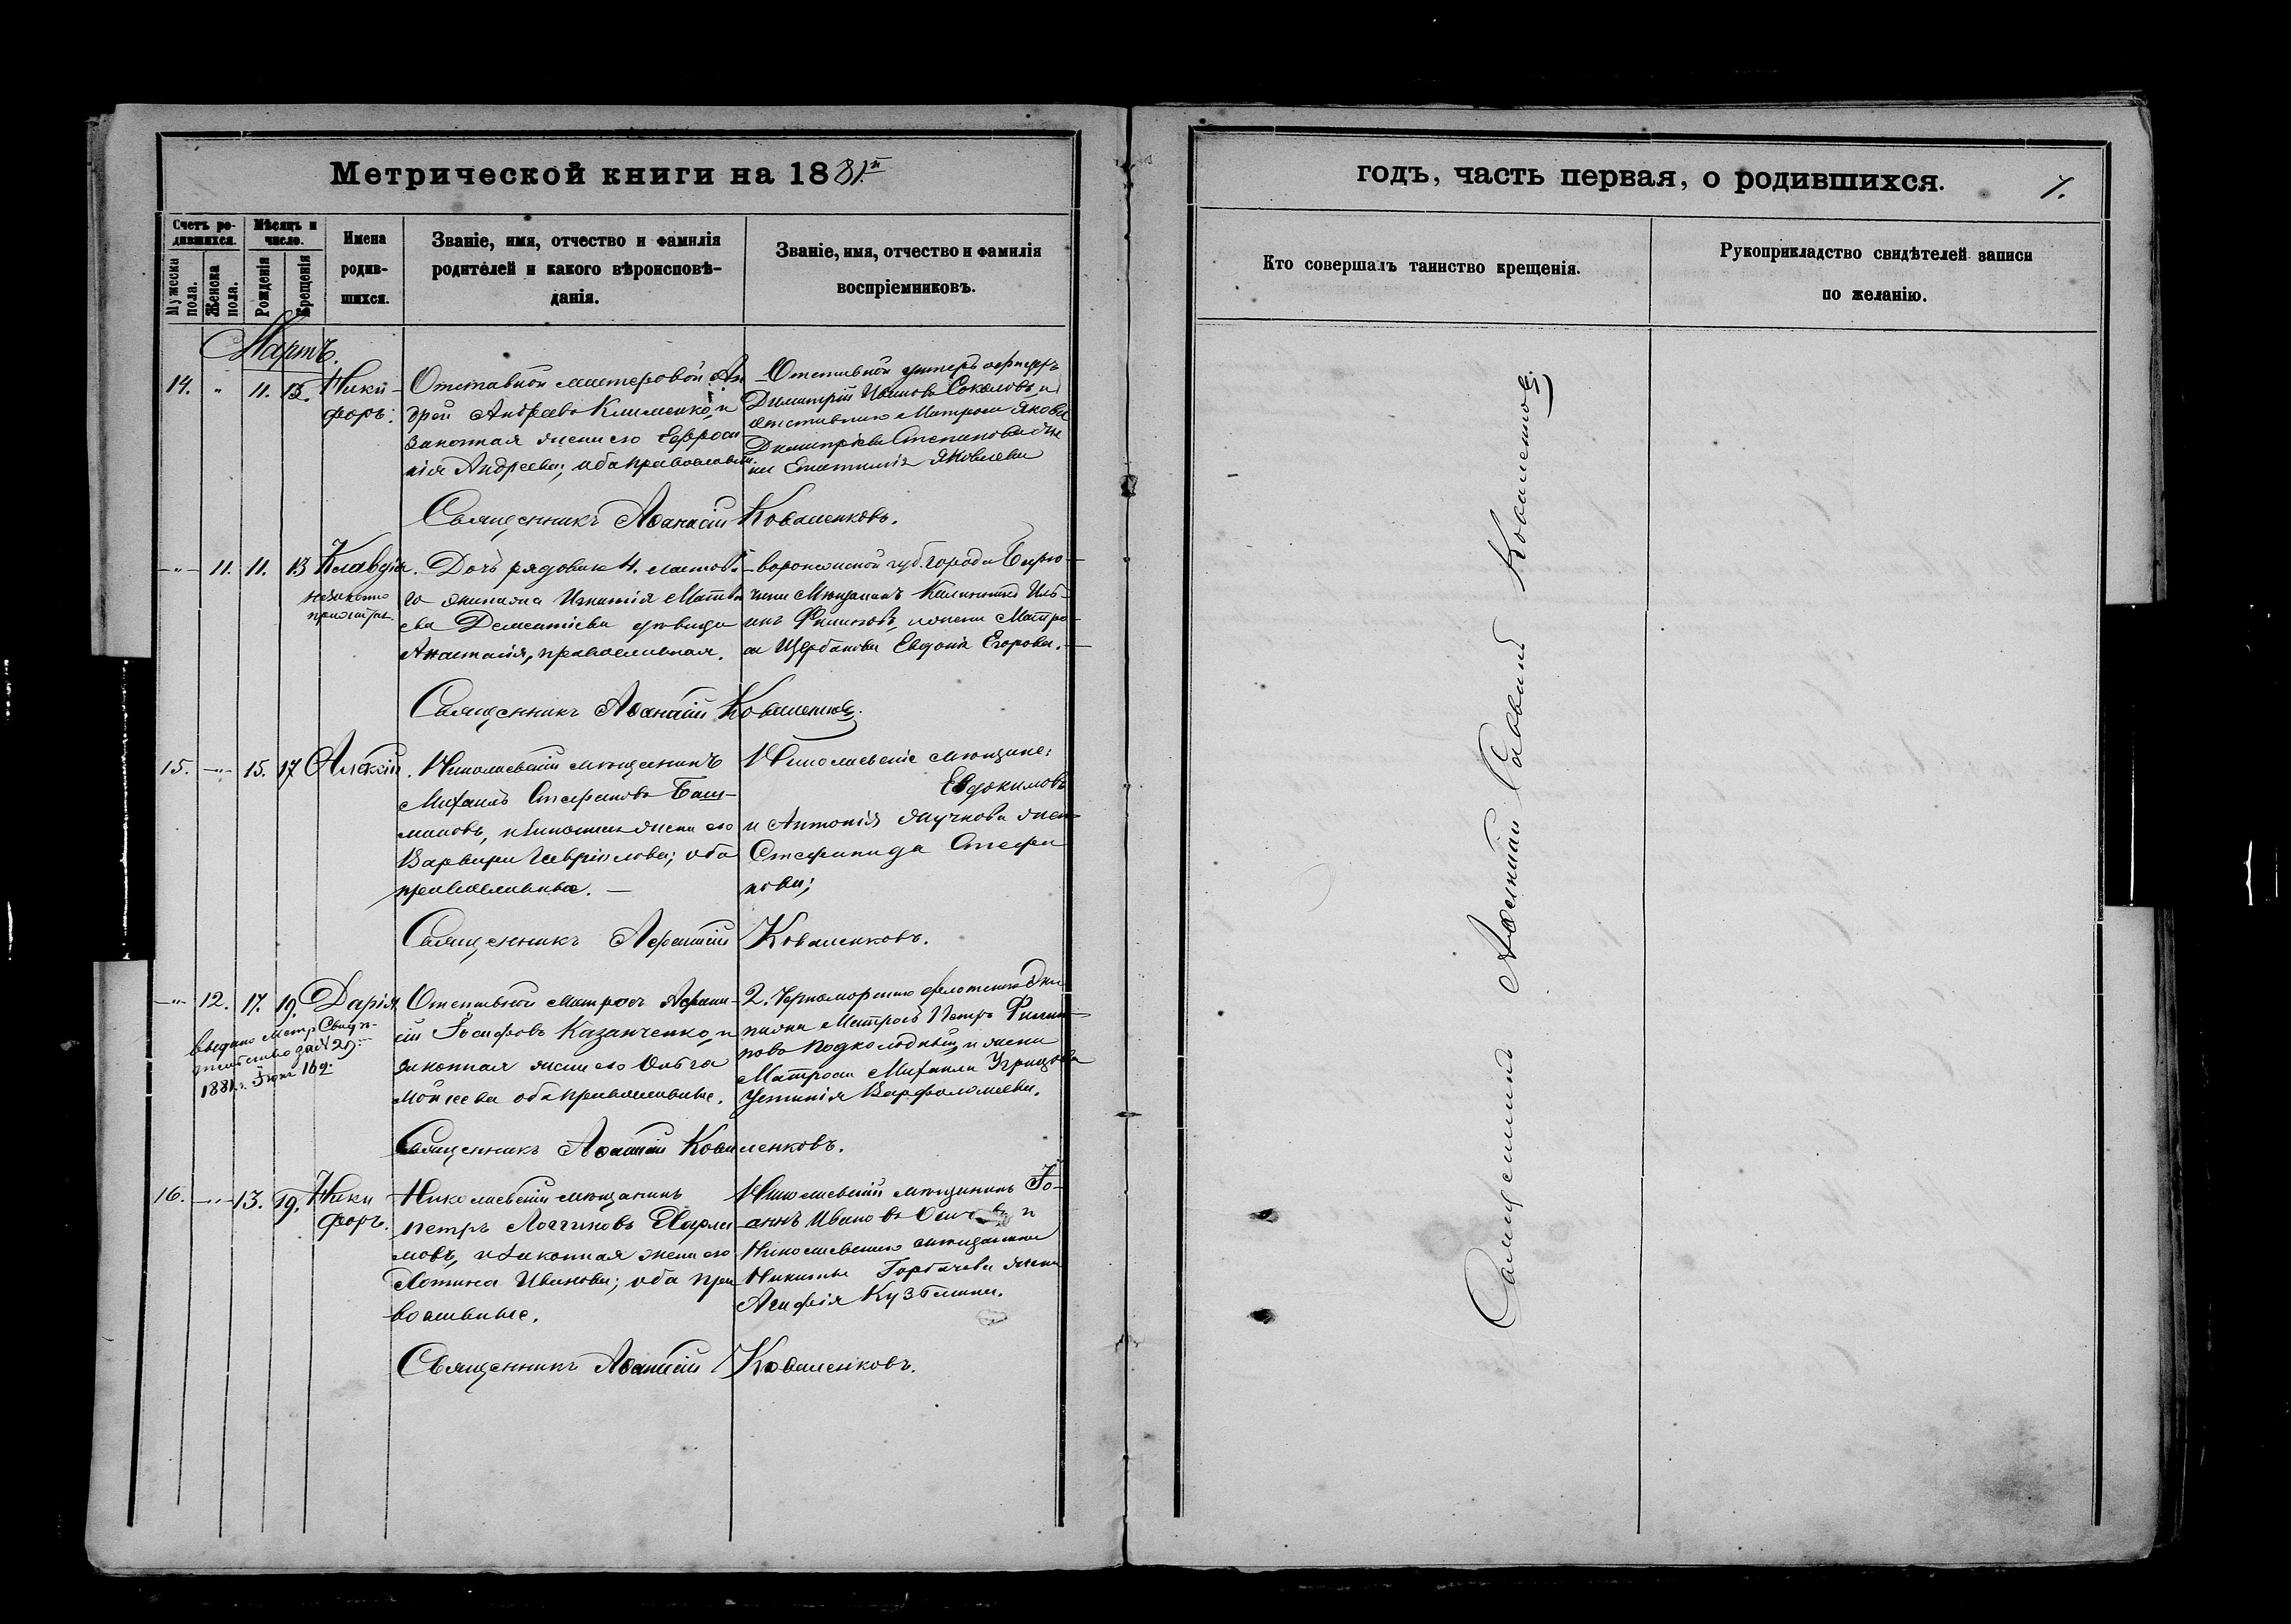 Метрической книги на 1881й
годъ, часть первая, о родившихся.
7.
Счетъ ро-
дившихся.
Мужеска
пола.
Женска
пола.
Мѣсяцъ и
число.
Рожденія
Крещенія
Имена
родив-
шихся.
Званіе, имя, отчество и фамилія
родителей и какого вѣроисповѣ-
данія.
Званіе, имя, отчество и фамилія
воспріемниковъ.
Кто совершалъ таинство крещенія.
Рукоприкладство свидѣтелей записи
по желанію.
Мартъ.
14. " 11. 13. Ники-
форъ.
Отставной мастеровой Ан
дрей Андреевъ Клименко, и
законная жена его Евфроси
нія Андреева; оба православн.
Отставной унтеръ офицеръ
Димитрій Ивановъ Соколовъ, и
отставнаго Матроса Якова
Димитріева Степанова же
на Евгенія Яковлева
Священникъ Аѳанасій Коваленковъ.
" 11. 11. 13 Клавдія.
незаконно
Дочь рядоваго 4. ластова
го экипажа Игнатія Матвѣ
ева Дементіева дѣвица
Анастасія, православная.
Воронежской губ. города Бирю
ча Мѣщанинъ Ильинъ
Филиповъ, и жена Матро
са Щербакова Евдокія Егорова.
Священникъ Аѳанасій Коваленковъ.
15. " 15. 17 Алексій.
Николаевскій мѣщанинъ
Михаилъ Стефановъ Баш-
маковъ, и законная жена его
Варвара Гавріилова; оба
православные.
Николаевскіе мѣщане:
Евдокимовъ
и Антонія жена
Стефанида Стефа
нова;
Священникъ Аѳанасій Коваленковъ.
" 12. 17. 19. Дарія.
Выдано Метр. Свидѣ-
тельство за № 29:
1881 г. Іюня 16 д.
Отставной матросъ Аѳана-
сій Іосифовъ Казанченко, и
законная жена его Ольга
Моисеева оба православные.
2. Черноморскаго флотскаго Эки
пажа Матросъ Петръ Филип-
повъ Подколодный, и жена
Матроса Михаила Угрицова
Устинія Варфоломеева.
Священникъ Аѳанасій Коваленковъ.
16. " 13. 19. Ники
форъ.
Николаевскій мѣщанинъ
Петръ Логгиновъ Харла
мовъ, и законная жена его
Фотина Иванова; оба пра
вославные.
Николаевскій мѣщанинъ Іо-
аннъ Ивановъ и
Николаевскаго мѣщанина
Никиты Горбачева жена
Агафія Кузьмина.
Священникъ Аѳанасій Коваленковъ.
Священникъ Аѳанасій Саввинъ Коваленковъ.